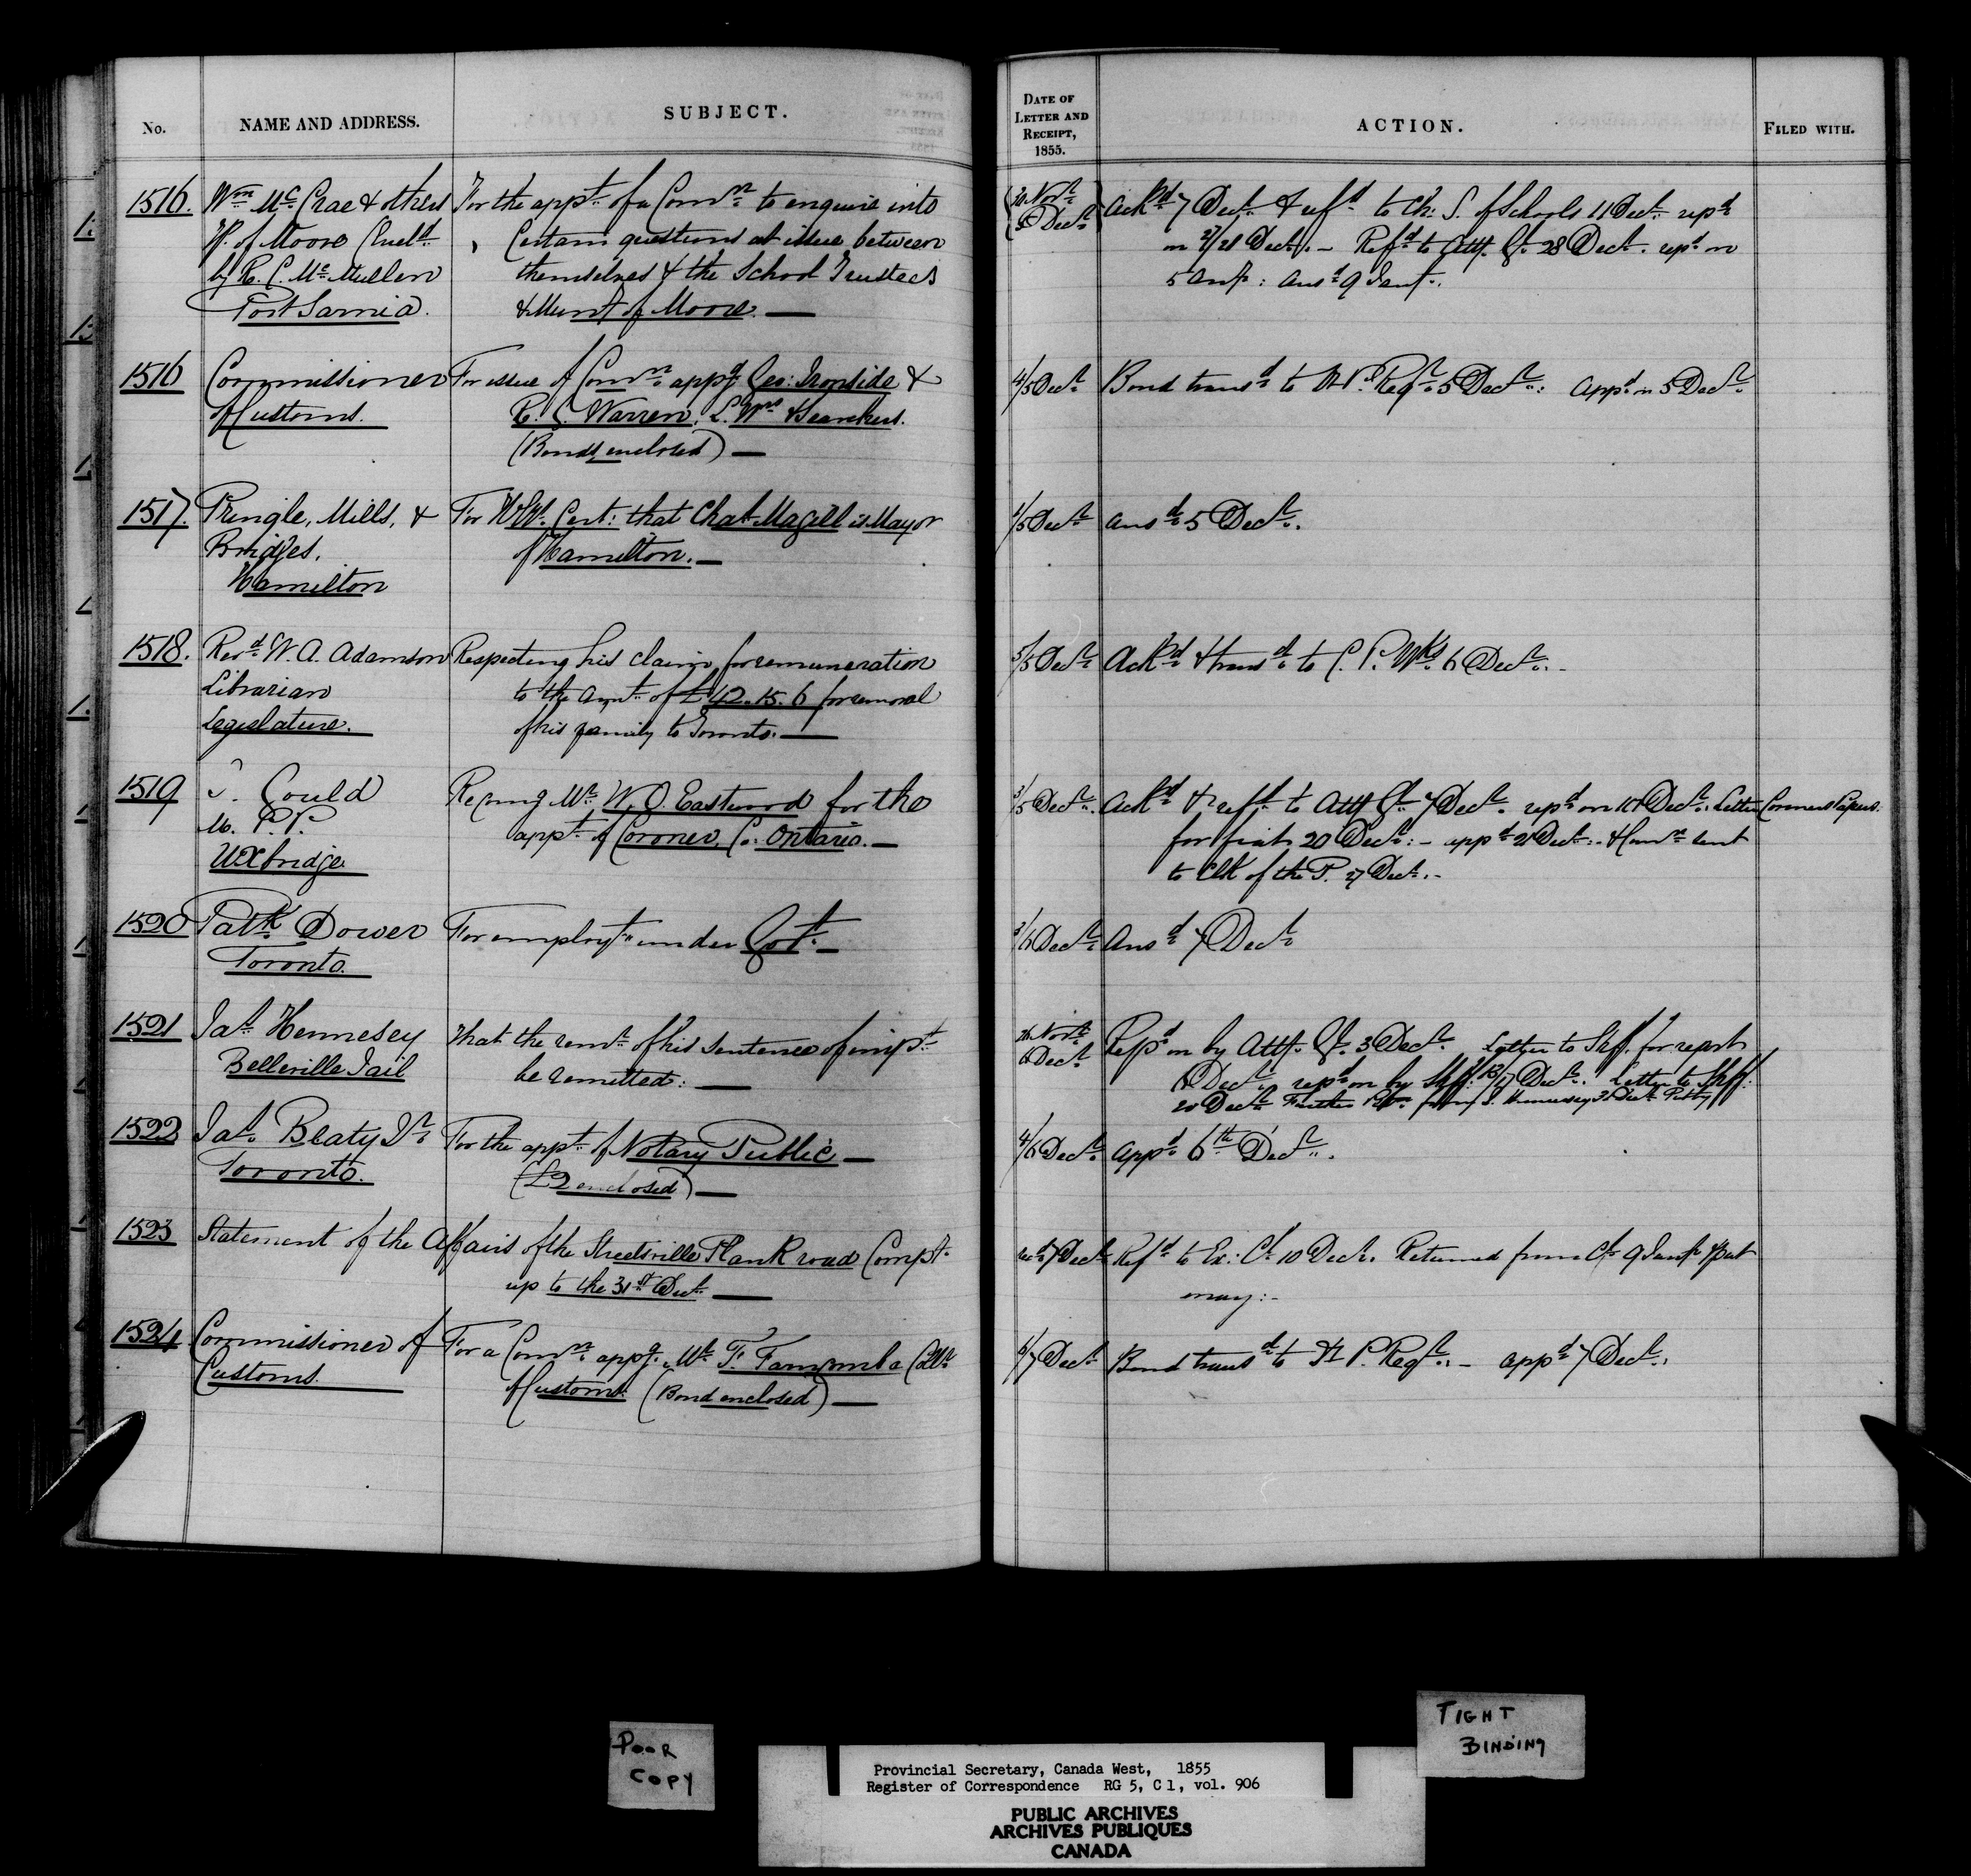 No.
NAME AND ADDRESS.
SUBJECT.
DATE OF
LETTER AND
RECEIPT,
1855.
ACTION.
FILED WITH.
1516.
Wm McCrae & others
W. of Moore
by R. C. McMullen
Port Sarnia.
For the appt of a Comn to enquire into
Certain questions at issue between
themselves & the School Trustees
& Munty of Moore. —
30 Novr
5 Decr
Ackd 7 Decr & refd to Ch: S. of Schools 11 Decr repd
on 27/28 Decr. — Refd to Atty Gl. 28 Decr. repd on
5 : Ansd 9 Jany.
1516
Commissioner
of Customs.
For issue of Comns appg Geo: Ironside &
R. C. Warren, L. Wrs & Searchers.
(Bonds enclosed) —
4/5 Decr
Bond transd to H P. Regr 5 Decr: Appd on 5 Decr
1517.
Pringle, Mills, &
Bridges,
Hamilton
For Cert: that Chas Magill is Mayor
of Hamilton. —
1/5 Decr
Ansd 5 Decr.
1518.
Revd W. A. Adamson
Librarian
Legislature.
Respecting his claim for remuneration
to the amt of £42.15.6 for removal
of his family to Toronto. —
5/5 Decr
Ackd & transd to C. P. Wks 6 Decr. -
1519
J. Gould
M. P. P.
Uxbridge
Recomg Mr W. O. Eastwood for the
appt of Coroner, Co: Ontario. —
3/5 Decr.
Ackd & refd to Atty Gl. 7 Decr. repd on Decr. Letter
for fiat 20 Decr: - appd 21 Decr: - & Comn sent
to Clk of the P. 27 Decr. -
Coroners Papers.
1520
Patk Dower
Toronto.
For employt under Govt. —
3/6 Decr
Ansd 7 Decr
1521
Jas Hennesey
Belleville Jail
That the remr of his sentence of impt
be remitted: —
26 Novr
6 Decr
Repd on by Atty. Gl. 3 Decr. Letter to Shff. for report
Decr. repd on by Shff: 13/17 Decr. Letter to Shff:
20 Decr Further Petn from J. Hennessey 31 Decr
1522
Jas. Beaty Jr
Toronto.
For the appt of Notary Public —
(£2 enclosed) —
4/6 Decr
Appd 6th Decr.
1523
Statement of the Affairs of the Streetsville Plank road Compy.
up to the 31st Decr. —
recd 7 Decr
Refd to Ex: Cl. 10 Decr. Returned from Cl. 9 Jany
may: -
1524
Commissioner of
Customs.
For a Comn appg Mr T. Collr
of Customs. (Bond enclosed) —
6/7 Decr
Bond transd to H P. Regr: - Appd 7 Decr.
POOR
COPY
TIGHT
BINDING
Provincial Secretary, Canada West, 1855
Register of Correspondence RG 5, C 1, vol. 906
PUBLIC ARCHIVES
ARCHIVES PUBLIQUES
CANADA